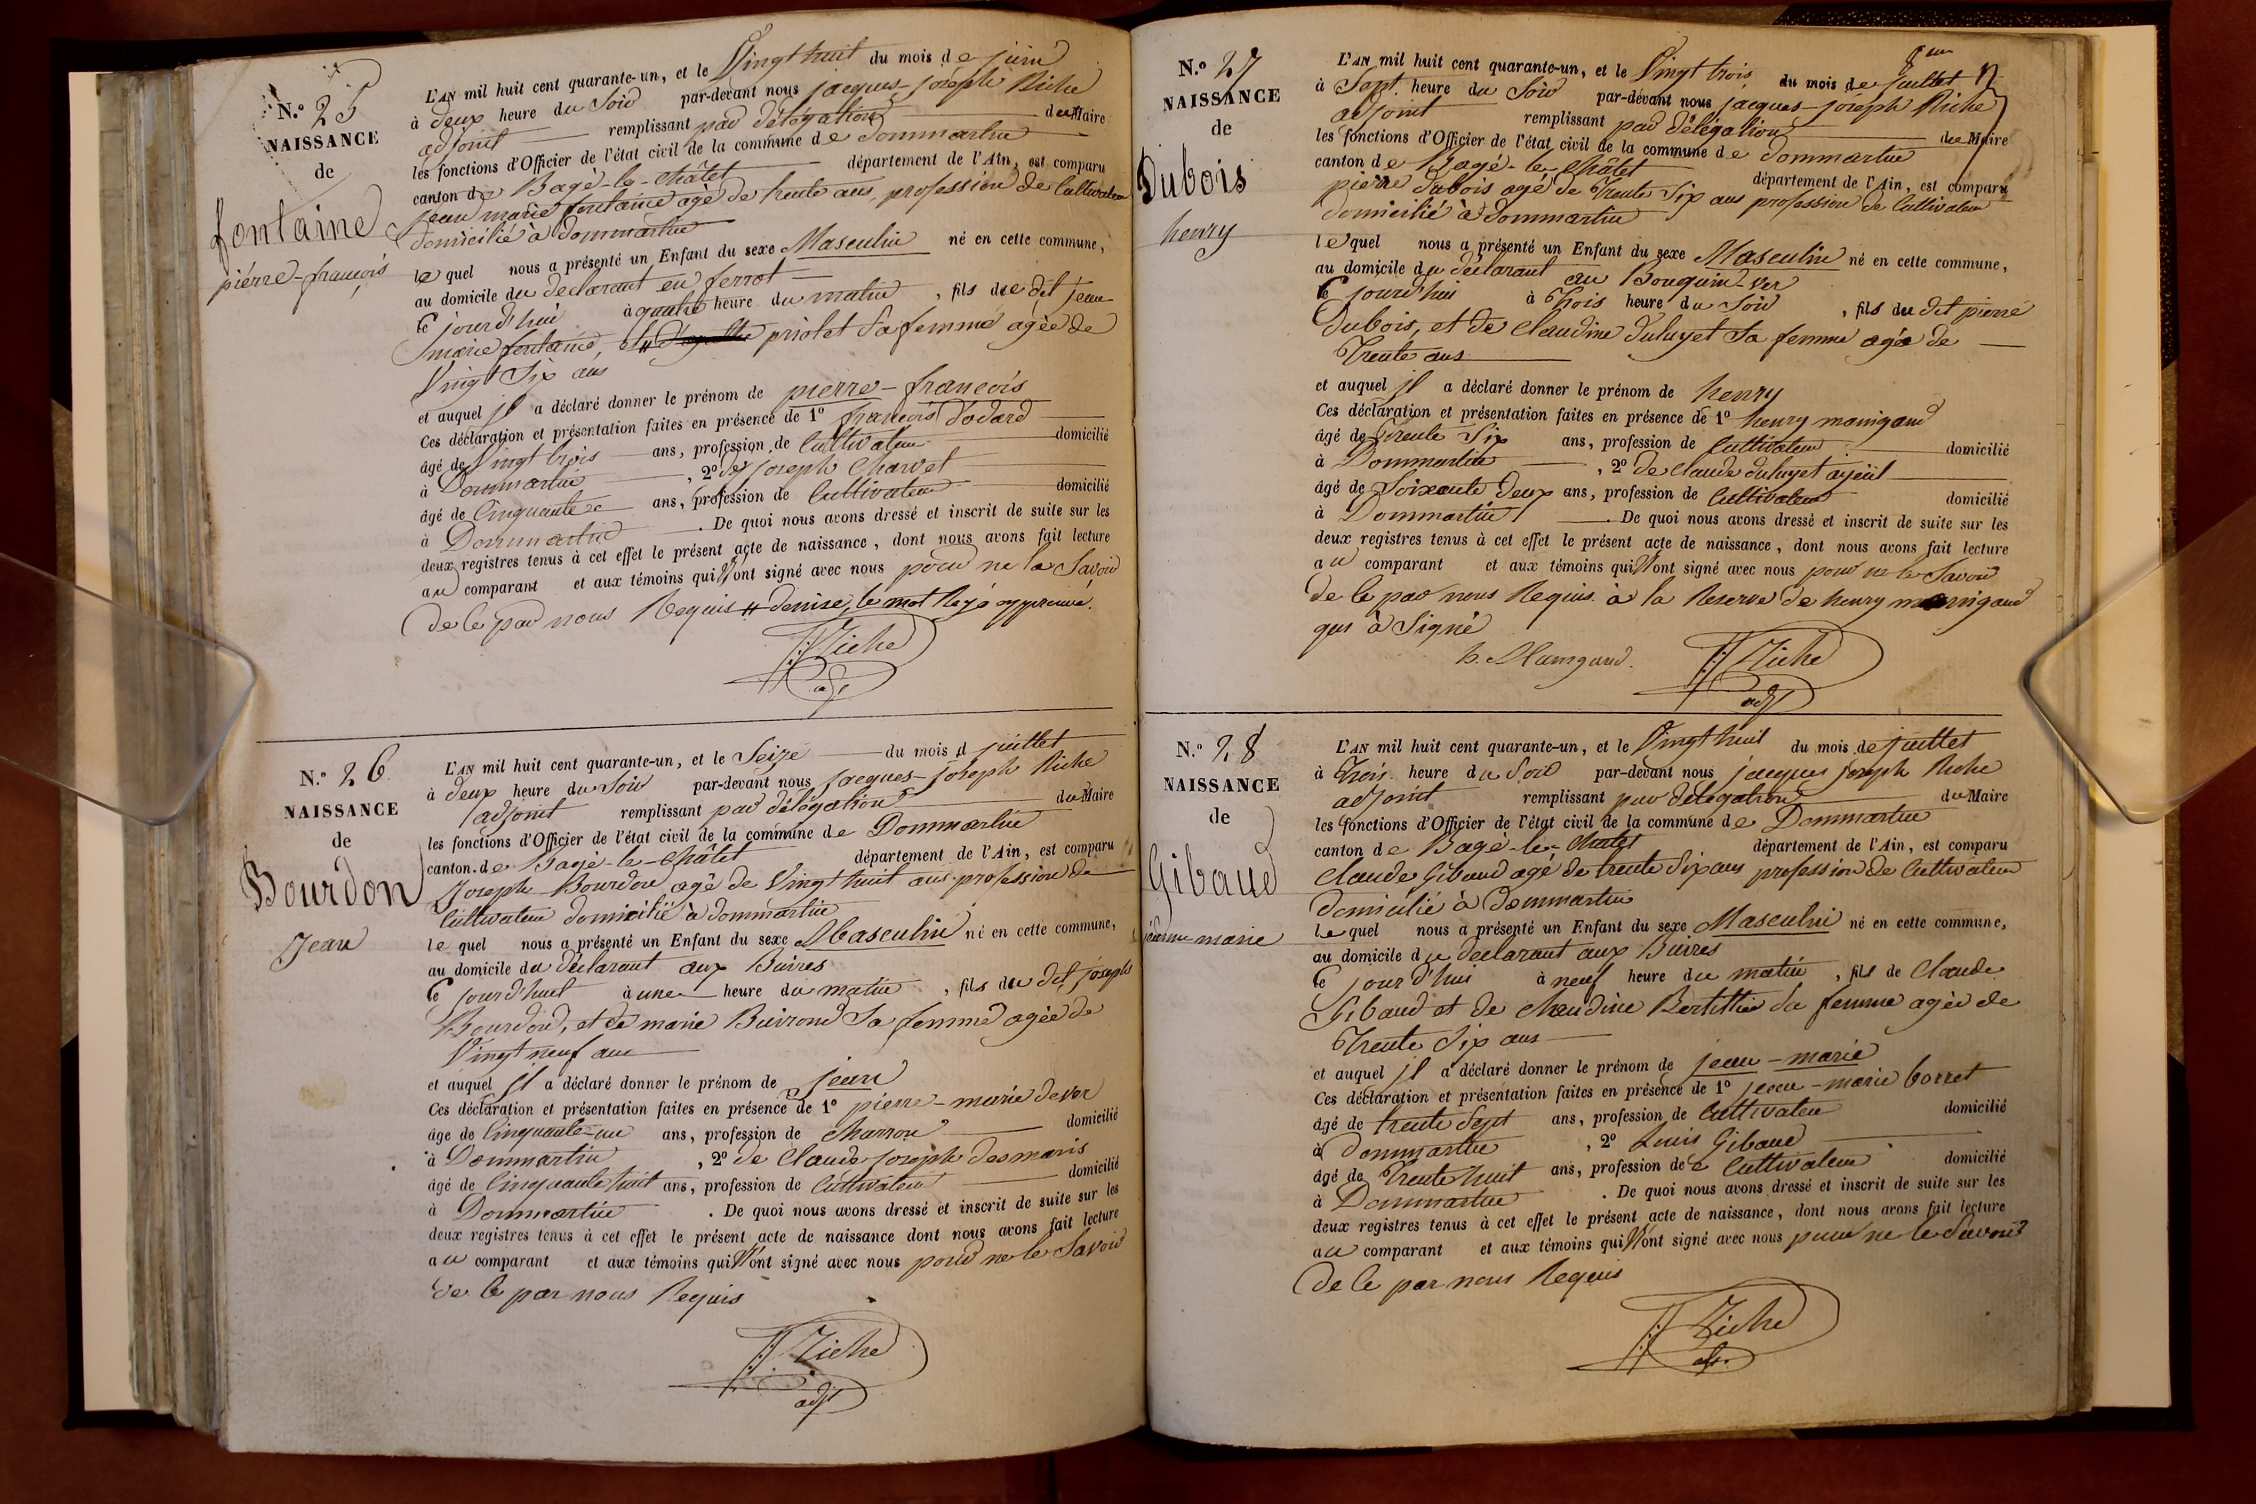 N.o 25
NAISSANCE
de
fontaine
pierre-françois
L'AN mil huit cent quarante-un, et le Vingt huit du mois de juin
à deux heure du Soir par-devant nous jacques-joseph Riche
adjoint remplissant par délégation du Maire
les fonctions d'Officier de l'état civil de la commune de Dommartin
canton de Bagé-le-Châtel département de l'Ain, est comparu
jean marie fontaine agé de trente ans, profession de Cultivateur
domicilié à Dommartin
le quel nous a présenté un Enfant du sexe Masculin né en cette commune,
au domicile du déclarant en ferrot
Ce jourd'hui à quatre heure du matin, fils du dit jean
marie fontaine, et # priolet Sa femme agée de
Vingt Six ans
et auquel jl a déclaré donner le prénom de pierre-françois
Ces déclaration et présentation faites en présence de 1o françois Dodard
âgé de Vingt trois ans, profession de Cultivateur domicilié
à Dommartin, 2o de joseph Charvet
âgé de Cinquante ans, profession de Cultivateur domicilié
à Dommartin. De quoi nous avons dressé et inscrit de suite sur les
deux registres tenus à cet effet le présent acte de naissance, dont nous avons fait lecture
au comparant et aux témoins qui N'ont signé avec nous pour ne la Savoir
de Ce par nous Requis # denise, le mot Rayé approuvé.
Riche
adj
N.o 26
NAISSANCE
de
Bourdon
Jean
L'AN mil huit cent quarante-un, et le Seize du mois d juillet
à deux heure du Soir par-devant nous jacques-joseph Riche
adjoint remplissant par délégation du Maire
les fonctions d'Officier de l'état civil de la commune de Dommartin
canton de Bagé-le-Châtel département de l'Ain, est comparu
Joseph Bourdon agé de Vingt huit ans profession de
Cultivateur domicilié à dommartin
le quel nous a présenté un Enfant du sexe Masculin né en cette commune,
au domicile du déclarant aux Buires
Ce jourd'huit à une heure du matin, fils du dit joseph
Bourdon, et de marie Buirond Sa femme agée de
Vingt neuf ans
et auquel jl a déclaré donner le prénom de jean
Ces déclaration et présentation faites en présence de 1o pierre-marie devor
âge de Cinquante-un ans, profession de Charron domicilié
à Dommartin, 2o de Claude joseph desmaris
âgé de Cinquante huit ans, profession de Cultivateur domicilié
à Dommartin. De quoi nous avons dressé et inscrit de suite sur les
deux registres tenus à cet effet le présent acte de naissance dont nous avons fait lecture
au comparant et aux témoins qui N'ont signé avec nous pour ne le Savoir
de Ce par nous Requis
Riche
adjt
N.o 27
NAISSANCE
de
Dubois
henry
L'AN mil huit cent quarante-un, et le Vingt trois du mois de juillet
à Sept heure du Soir par-devant nous jacques-joseph Riche
adjoint remplissant par délégation du Maire
les fonctions d'Officier de l'état civil de la commune de Dommartin
canton de Bagé-le-Châtel département de l'Ain, est comparu
pierre dubois agé de Trente Six ans profession de Cultivateur
domicilié à Dommartin
le quel nous a présenté un Enfant du sexe Masculin né en cette commune,
au domicile du déclarant au Bouquin-ver
Ce jourd'hui à Trois heure du Soir, fils du dit pierre
Dubois, et de Claudine duluyet Sa femme agée de
Trente ans
et auquel jl a déclaré donner le prénom de henry
Ces déclaration et présentation faites en présence de 1o henry manigand
âgé de Trente Six ans, profession de Cultivateur domicilié
à Dommartin, 2o de Claude duluyet ayeüil
âgé de Soixante Deux ans, profession de Cultivateur domicilié
à Dommartin. De quoi nous avons dressé et inscrit de suite sur les
deux registres tenus à cet effet le présent acte de naissance, dont nous avons fait lecture
au comparant et aux témoins qui N'ont signé avec nous pour ne le Savoir
de Ce par nous Requis à la Reserve de henry manigand
qui à Signé
h. Manigand. Riche
adj
N.o 28
NAISSANCE
de
Gibaud
jean marie
L'AN mil huit cent quarante-un, et le Vingt huit du mois de juillet
à Trois heure du Soir par-devant nous jacques joseph Riche
adjoint remplissant par délégation du Maire
les fonctions d'Officier de l'état civil de la commune de Dommartin
canton de Bagé-le-Châtel département de l'Ain, est comparu
Claude Gibaud agé de trente Six ans profession de Cultivateur
domicilié à Dommartin
le quel nous a présenté un Enfant du sexe Masculin né en cette commune,
au domicile du déclarant aux Buires
Ce jourd'hui à neuf heure du matin, fils de Claude
Gibaud et de Claudine Bertillier Sa femme agée de
Trente Six ans
et auquel jl a déclaré donner le prénom de jean-marie
Ces déclaration et présentation faites en présence de 1o jean-marie borret
âgé de trente Sept ans, profession de Cultivateur domicilié
à Dommartin, 2o Louis Gibaud
âgé de Trente huit ans, profession de Cultivateur domicilié
à Dommartin. De quoi nous avons dressé et inscrit de suite sur les
deux registres tenus à cet effet le présent acte de naissance, dont nous avons fait lecture
au comparant et aux témoins qui N'ont signé avec nous pour ne le Savoir
de Ce par nous Requis
Riche
adj.